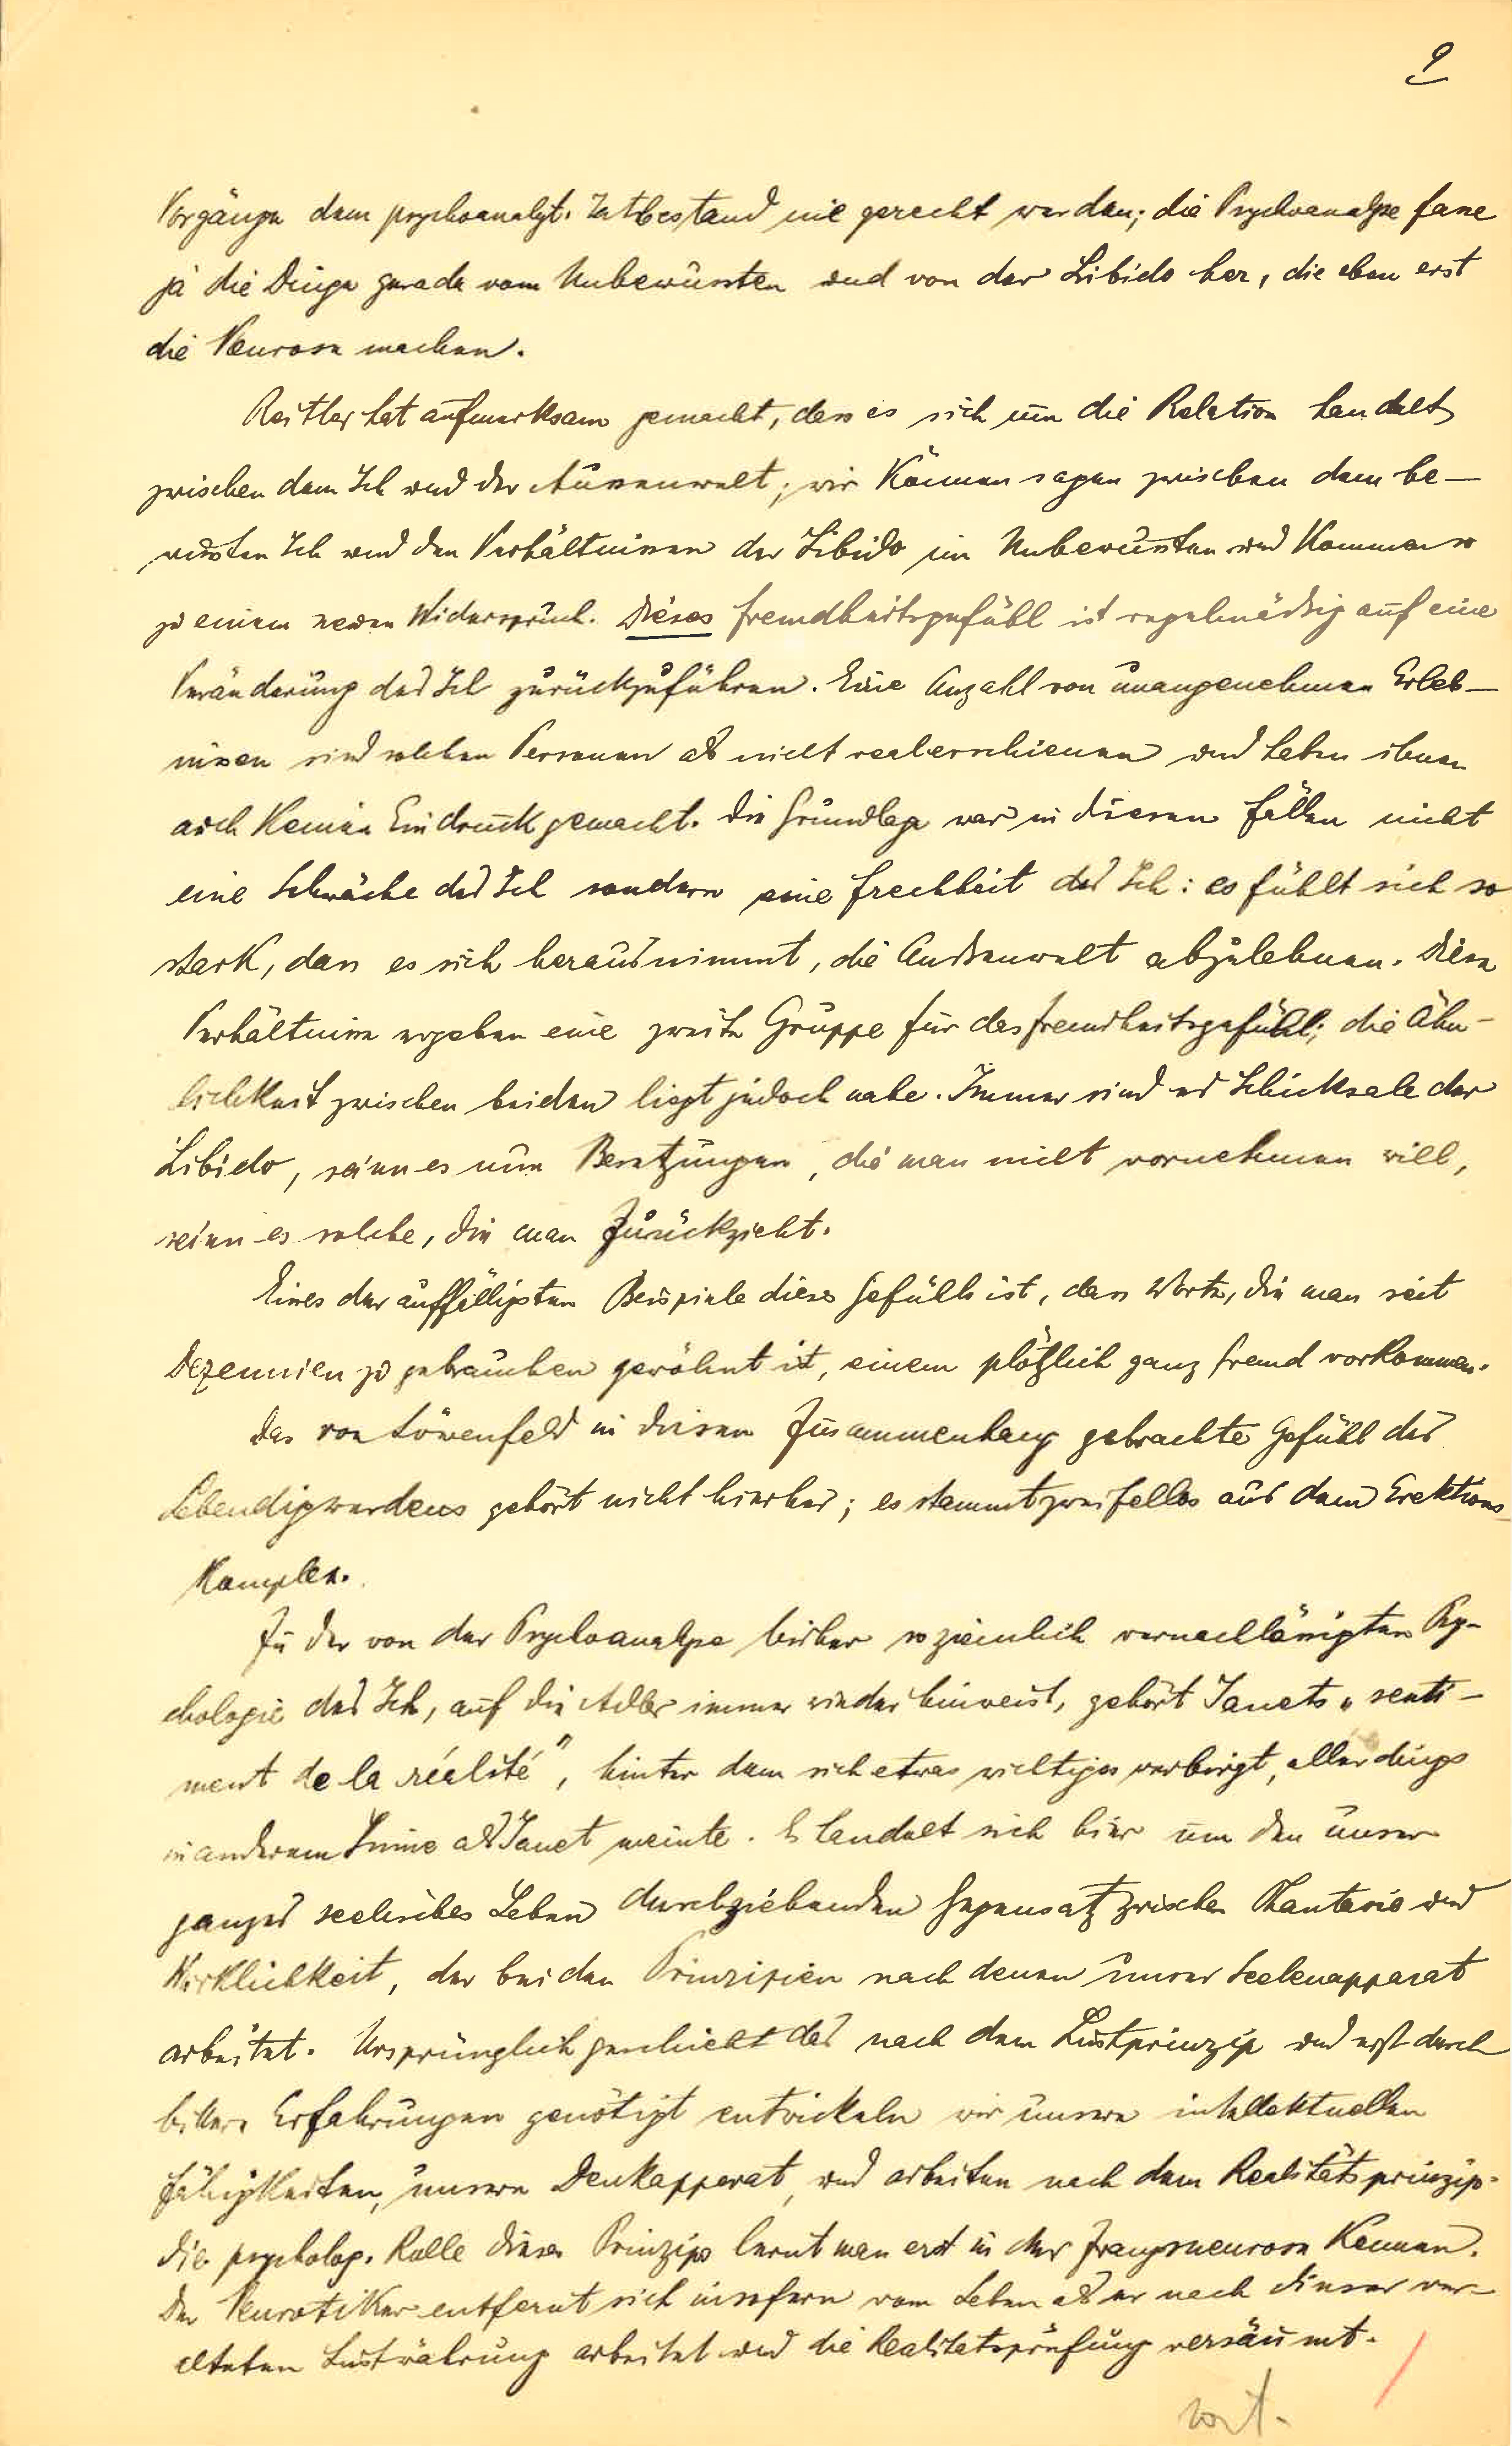 9
Vorgänge dem psychoanalyt. Tatbestand nie gerecht werden; die Psychoanalyse fasse
ja die Dinge gerade vom Unbewussten und von der Libido her, die eben erst
die Neurose machen.
Reitler hat aufmerksam gemacht, dass es sich um die Relation handelt
zwischen dem Ich und der Aussenwelt; wir können sagen zwischen dem be-
wussten Ich und den Verhältnissen der Libido im Unbewussten und kommen so
zu einem neuen Widerspruch. Dieses Fremdheitsgefühl ist regelmässig auf eine
Veränderung des Ich zurückzuführen. Eine Anzahl von unangenehmen Erleb-
nissen sind solchen Personen als nicht real erschienen und haben ihnen
auch keinen Eindruck gemacht. Die Grundlage war in diesen Fällen nicht
eine Schwäche des Ich sondern eine Frechheit des Ich: es fühlt sich so
stark, dass es sich herausnimmt, die Aussenwelt abzulehnen. Diese
Verhältnisse ergeben eine zweite Gruppe für das Fremdheitsgefühl; die Ähn-
lichkeit zwischen beiden liegt jedoch nahe. Immer sind es Schicksale der
Libido, seien es nun Besetzungen, die man nicht vornehmen will,
seien es solche, die man zurückzieht.
Eines der auffälligsten Beispiele dieses Gefühls ist, dass Worte, die man seit
Dezennien zu gebrauchen gewöhnt ist, einem plötzlich ganz fremd vorkommen.
Das von Löwenfeld in diesen Zusammenhang gebrachte Gefühl des
Lebendigwerdens gehört nicht hierher; es stammt zweifellos aus dem Erektions
Komplex.
Zu der von der Psychoanalyse bisher so ziemlich vernachlässigten Psy-
chologie des Ich, auf die Adler immer wieder hinweist, gehört Janets „senti-
ment de la réalité", hinter dem sich etwas wichtiges verbirgt, allerdings
in anderem Sinne als Janet meinte. Es handelt sich hier um den unser
ganzes seelisches Leben durchziehenden Gegensatz zwischen Phantasie und
Wirklichkeit, der beiden Prinzipien nach denen unser Seelenapparat
arbeitet. Ursprünglich geschieht das nach dem Lustprinzip und erst durch
bittere Erfahrungen genötigt entwickeln wir unsere intellektuellen
Fähigkeiten, unsern Denkapparat, und arbeiten nach dem Realitätsprinzip.
Die psycholog. Rolle dieses Prinzips lernt man erst in der Zwangsneurose kennen.
Der Neurotiker entfernt sich insofern vom Leben als er nach dieser ver-
alteten Lustwährung arbeitet und die Realitätsprüfung versäumt.